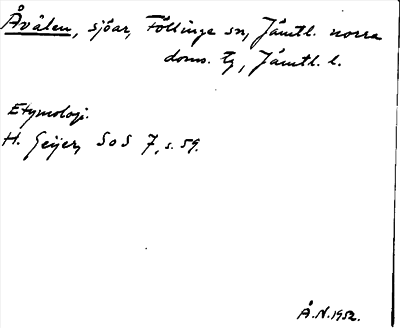 Åvålen, sjöar, Föllinge sn, Jämtl. norra
doms. tg, Jämtl. l.
Etymologi.
H. Geijer, SoS 7, s. 59.
Å.N. 1952.